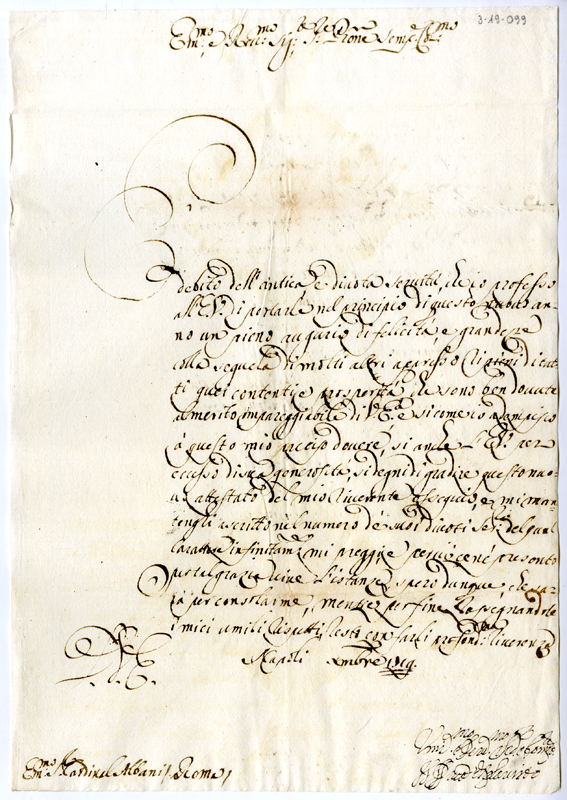 3-19-099
Em.mo e Rev.mo Sig.r S.r e P.rone Sem.e Col.mo
È debito dell'antica, e divota servitù, che io professo
all' V.ra di portarle nel principio di questo nuovo an-
no un pieno augurio di felicità, e grandezze
colla sequela di molti altri appresso ricolmi di tut-
ti quei contenti, e prosperità, che sono ben dovute
al merito impareggiabile di V.E.za e sicome io adempisco
à questo mio preciso dovere, si anche per
eccesso di sua generosità, si degni di gradire questo nuo-
vo attestato del mio riverente ossequio, e mi man-
tenghi ascritto nel numero de suoi divoti del qual
carattere infinitam.te mi preggio
grazie spero dunque, che sa-
rà per consolarme, mentre per fine rassegnandole
i miei umili rispetti resto con farli profond.ma riverenza
Napoli Xmbre 1719.
V. E.
Em.mo S. Cardinal Albani / Roma /